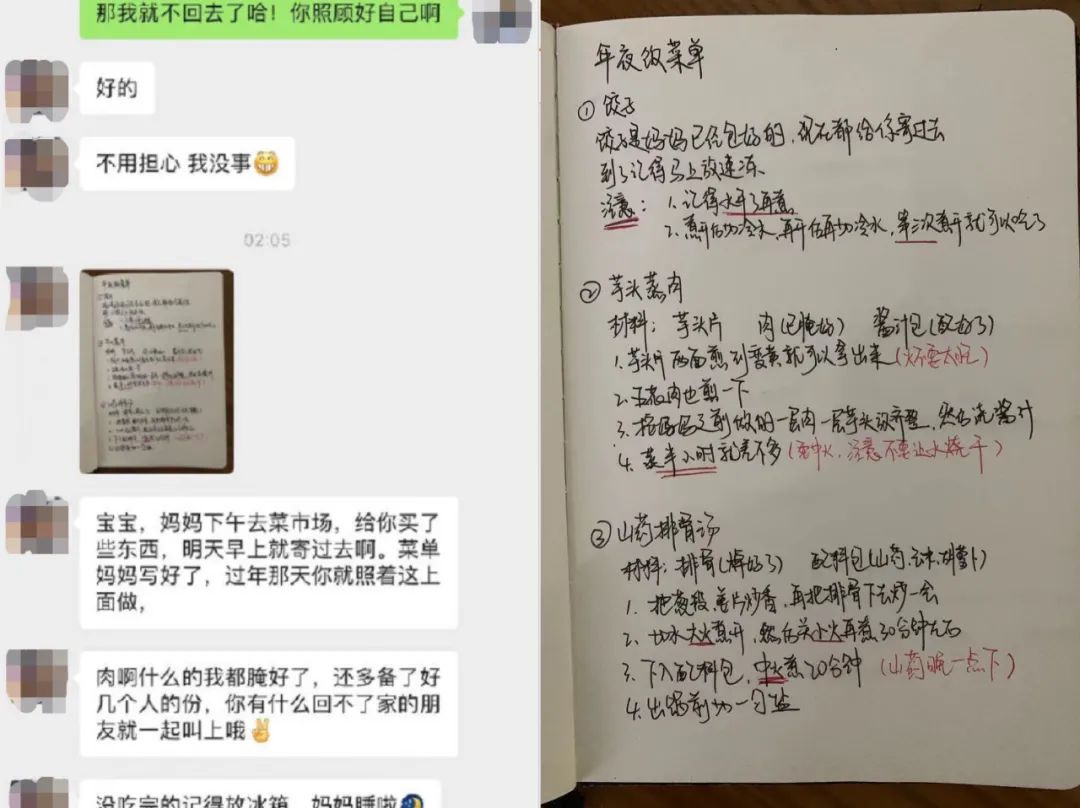 那我就不回去了哈！你照顾好自己啊
好的
不用担心 我没事😁
02:05
宝宝，妈妈下午去菜市场，给你买了
些东西，明天早上就寄过去啊。菜单
妈妈写好了，过年那天你就照着这上
面做，
肉啊什么的我都腌好了，还多备了好
几个人的份，你有什么回不了家的朋
友就一起叫上哦✌
没吃完的记得放冰箱，妈妈睡啦🌛
年夜饭菜单
① 饺子
饺子是妈妈已经包好的，现在都给你寄过去
到了记得马上放速冻.
注意：1.记得水开了再煮.
2.煮开后加冷水，再开后再加冷水，第三次煮开就可以吃了
② 芋头蒸肉
材料：芋头片 肉(已腌好) 酱汁包(配好了)
1.芋头片两面煎到变黄就可以拿出来(火不要太旺)
2.五花肉也煎一下
3.按妈妈之前做的一层肉一层芋头放齐整，然后浇酱汁
4.蒸半小时就差不多(要中火，注意不要让水烧干)
③ 山药排骨汤
材料：排骨(焯好了) 配料包(山药、玉米、胡萝卜)
1.把葱段、姜片炒香，再把排骨下去炒一会
2.加水大火煮开，然后关小火再煮30分钟左右
3.下入配料包，中火煮20分钟(山药晚一点下)
4.出锅前加一勺盐